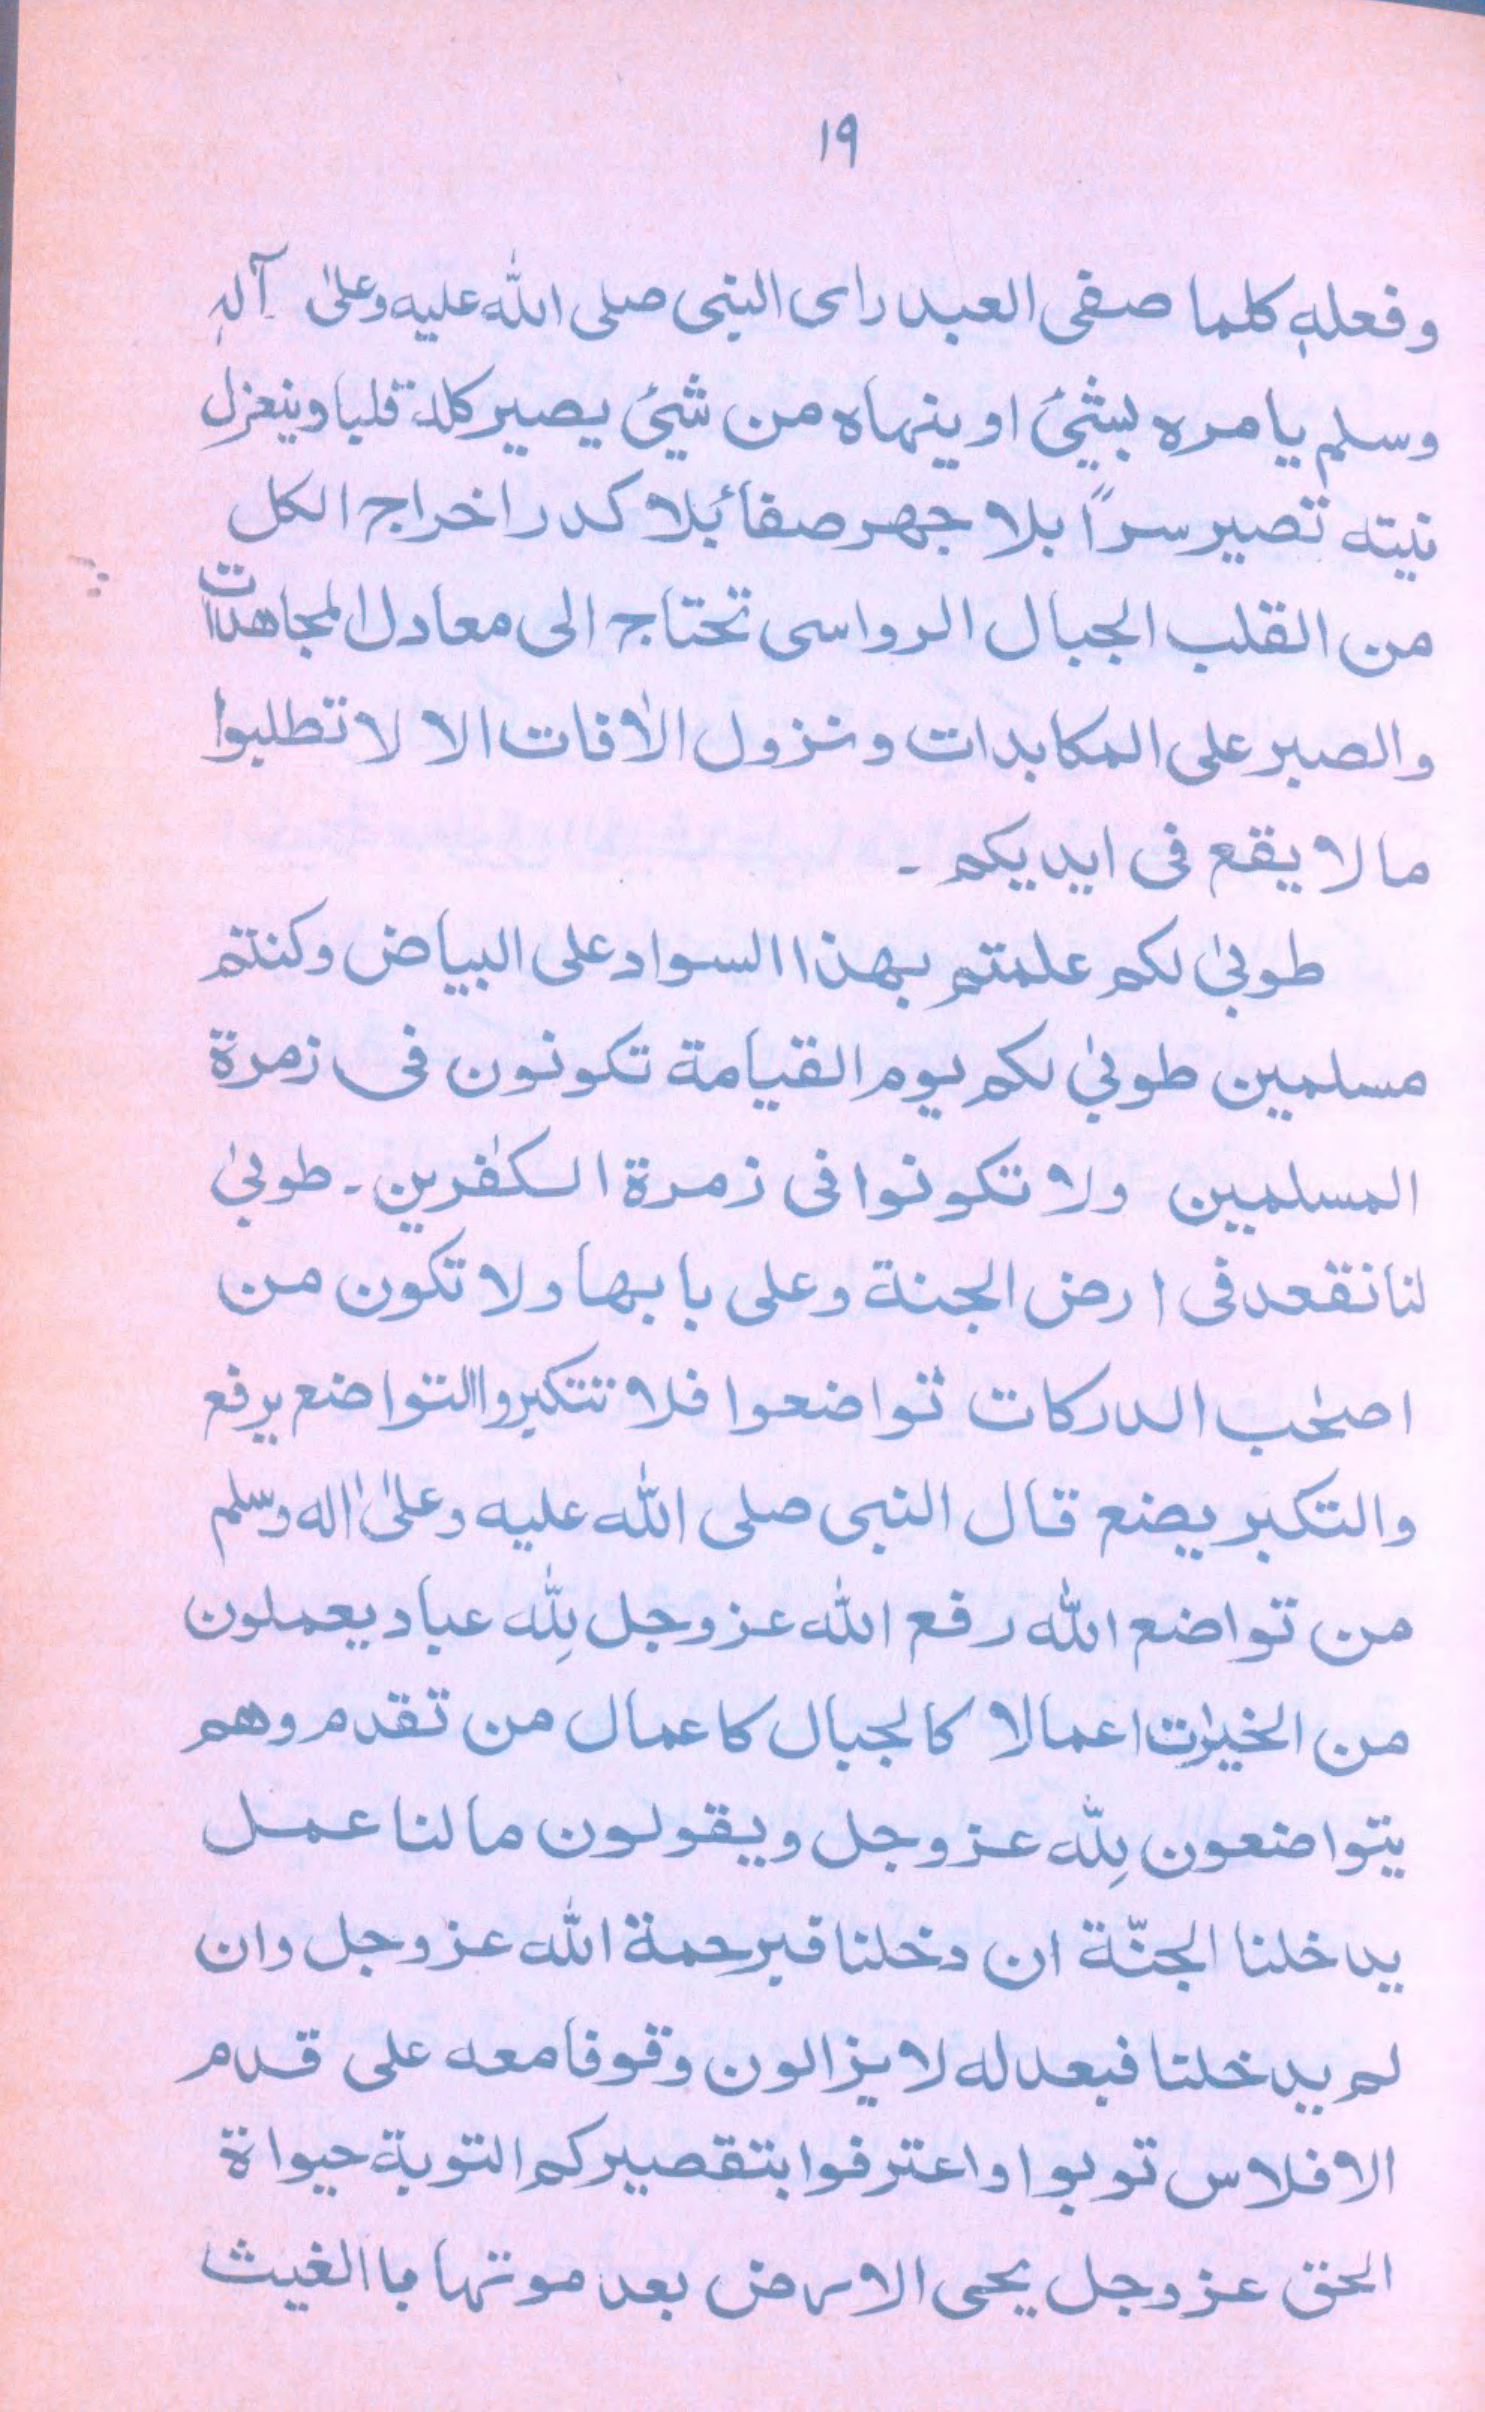 ١٩
وفعله كلما صفى العبد راى النبى صلى الله عليه وعلىٰ آله
وسلم يامره بشئ او ينهاه من شئ يصير كله قلبا وينعزل
نيته تصير سراً بلا جهر صفائ بلا كدر اخراج الكل
من القلب الجبال الرواسى تحتاج الى معادل المجاهدات
والصبر على المكابدات ونزول الافات الا لا تطلبوا
ما لا يقع فى ايديكم ۔
طوبىٰ لكم علمتم بهذا السواد على البياض وكنتم
مسلمين طوبىٰ لكم يوم القيامة تكونون فى زمرة
المسلمين ولا تكونوا فى زمرة الكٰفرين ۔ طوبىٰ
لنا نقعد فى ارض الجنة وعلى بابها ولا تكون من
اصحٰب الدركات تواضعوا فلا تتكبروا التواضع يرفع
والتكبر يضع قال النبى صلى الله عليه وعلىٰ اله وسلم
من تواضع الله رفع الله عز وجل لِلّٰه عباد يعملون
من الخيرٰت اعمالا كالجبال كاعمال من تقدم وهم
يتواضعون لِلّٰه عز وجل ويقولون ما لنا عمل
يدخلنا الجنّة ان دخلنا فبرحمة الله عز وجل وان
لم يدخلنا فبعدله لا يزالون وقوفا معه على قدم
الافلاس توبوا واعترفوا بتقصيركم التوبة حيواة
الحق عز وجل يحى الارض بعد موتها باالغيث